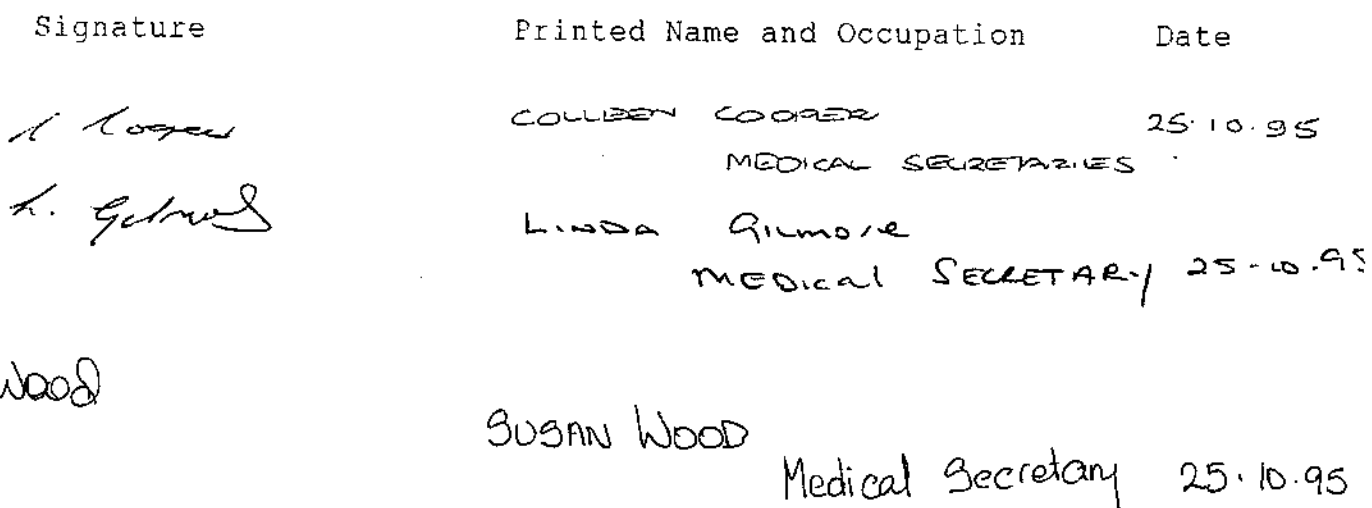 Signature Printed Name and Occupation Date
C Cooper COLLEEN COOPER 25.10.95
MEDICAL SECRETARIES
L. Gilmore LINDA Gilmore
MEDical SECRETARY 25-10.95
Wood
SUSAN WOOD
Medical Secretary 25.10.95